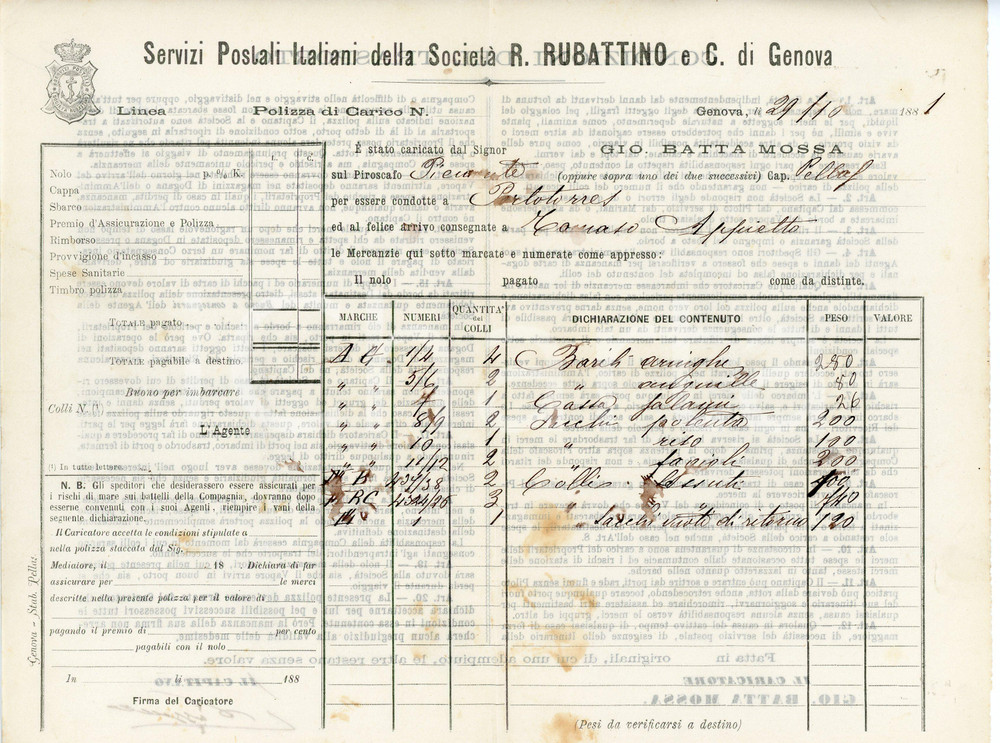 Servizi Postali Italiani della Società R. RUBATTINO e C. di Genova
Linea Polizza di Carico N.
Genova, li 29/10 1881
È stato caricato dal Signor GIO. BATTA MOSSA
sul Piroscafo (oppure sopra uno dei due successivi) Cap.
per essere condotte a Portotorres
ed al felice arrivo consegnate a Tomaso Appietto
le Mercanzie qui sotto marcate e numerate come appresso:
Il nolo pagato come da distinte.
L. C.
Nolo p. % K.
Cappa
Sbarco
Premio d'Assicurazione o Polizza
Rimborso
Provvigione d'incasso
Spese Sanitarie
Timbro polizza
Totale pagato
Totale pagabile a destino.
Buono per imbarcare
Colli N. (1)
L'Agente
(1) In tutte lettere.
N. B. Gli speditori che desiderassero essere assicurati per
i rischi di mare sui battelli della Compagnia, dovranno dopo
esserne convenuti con i suoi Agenti, riempire i vani della
seguente dichiarazione.
Il Caricatore accetta le condizioni stipulate a
nella polizza staccata dal Sig.
Mediatore, il 18 Dichiara di far
assicurare per le merci
descritte nella presente polizza per il valore di
pagando il premio di per cento
pagabili con il nolo
In li 188
Firma del Caricatore
Genova - Stab. Pellas
MARCHE NUMERI QUANTITA' dei COLLI DICHIARAZIONE DEL CONTENUTO PESO VALORE
1/4 4 Barili 280
" " 5/6 2 " 80
" " 7 1 Cassa salami 26
" " 8/9 2 Sacchi polenta 200
" " 10 1 " riso 100
" " 11/12 2 " fagioli 200
2 Collis 100
3 "
1 1 " Sacchi vuoti di ritorno 120
(Pesi da verificarsi a destino)